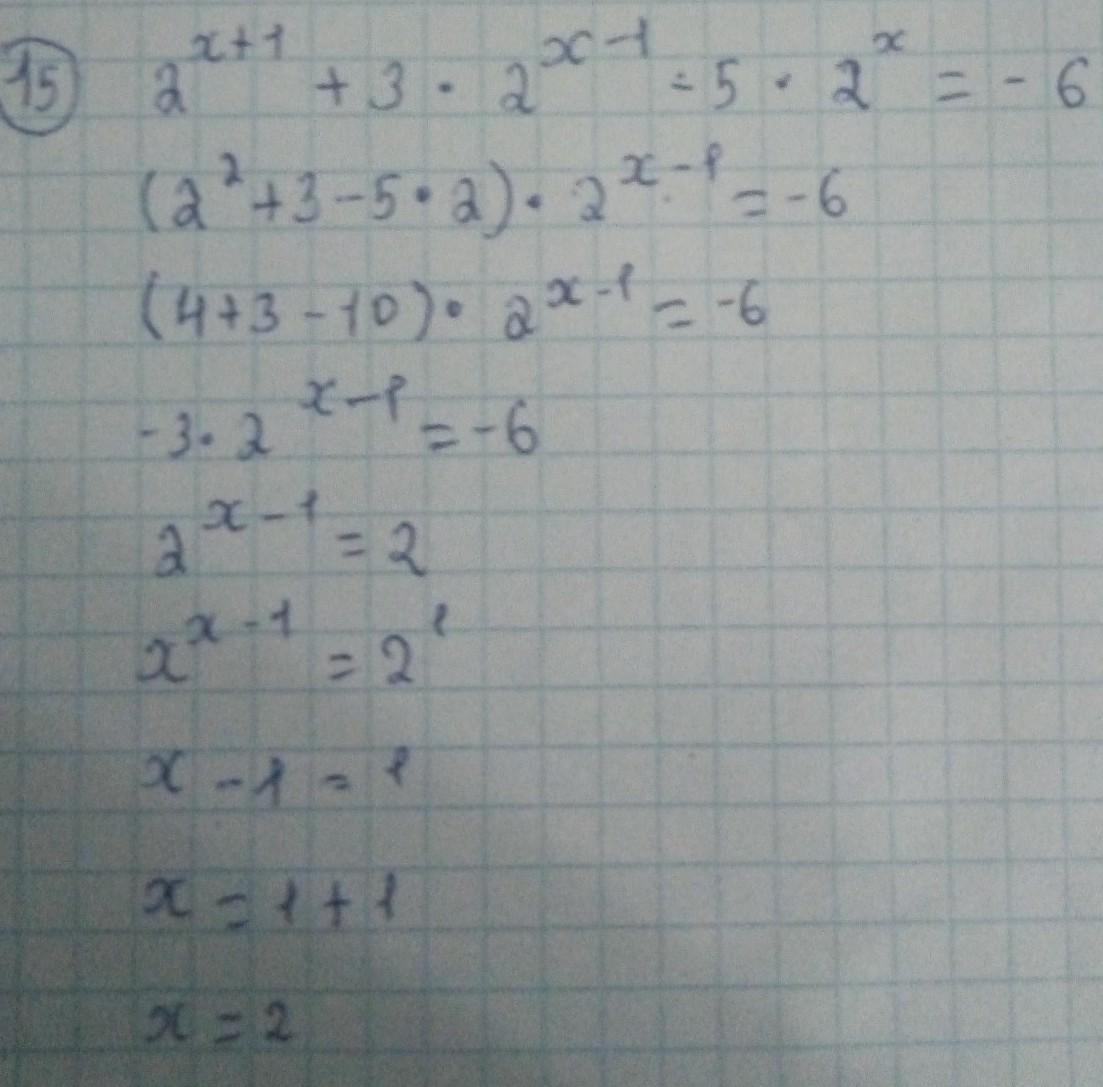 15 2^{x+1} + 3 · 2^{x-1} - 5 · 2^x = - 6
(2^2 + 3 - 5 · 2) · 2^{x-1} = -6
(4 + 3 - 10) · 2^{x-1} = -6
-3 · 2^{x-1} = -6
2^{x-1} = 2
x^{x-1} = 2^1
x - 1 = 1
x = 1 + 1
x = 2